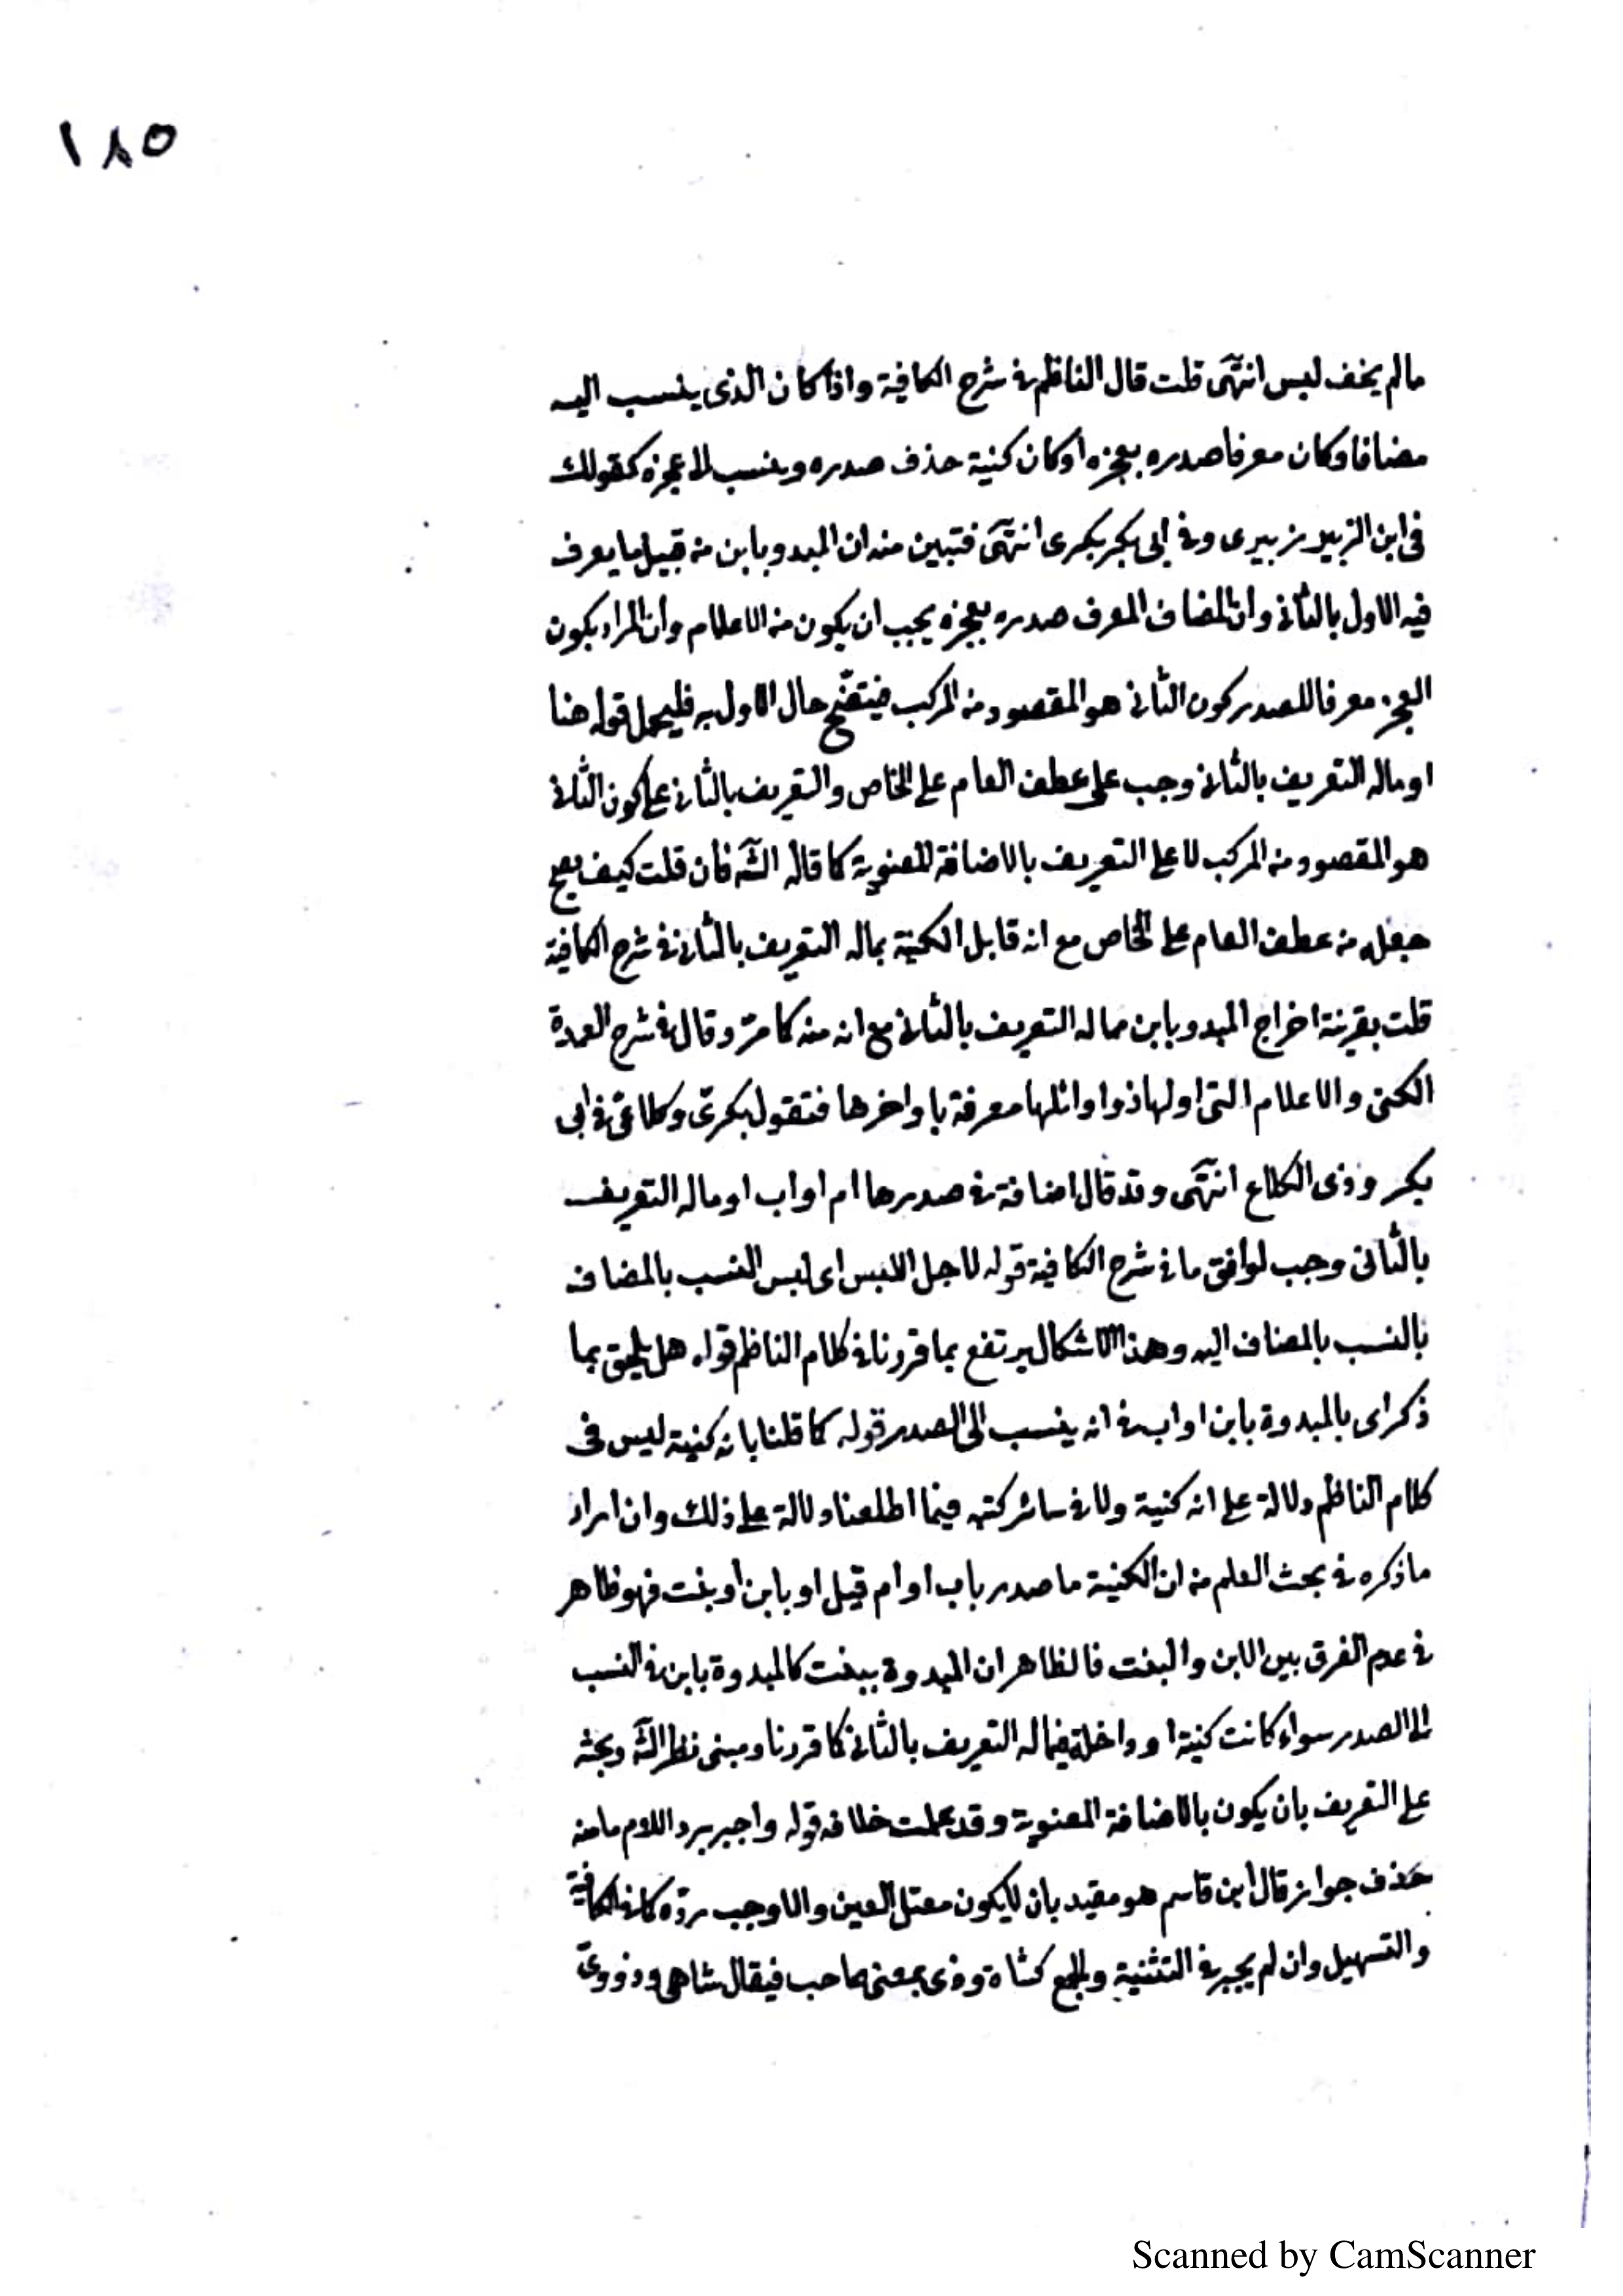 ١٨٥
مالم يخف لبس انتهى قلت قال الناظم في شرح الكافية واذا كان الذى ينسب اليه
مضافا وكان معرفا صدره بعجزه اوكان كنية حذف صدره وينسب لا عجزه كقولك
فى ابن الزبير زبيرى وفي ابى بكر بكرى انتهى فتبين منه ان المبدو بابن من قبيل ما يعرف
فيه الاول بالثاني وان المضاف المعرف صدره بعجزه يجب ان يكون من الاعلام وان المراد بكون
العجز معرفا للصدر كون الثاني هو المقصود من المركب فيتضح حال الاول به فليحمل قوله هنا
او ماله التعريف بالثاني وجب على عطف العام على الخاص والتعريف بالثاني على كون الثاني
هو المقصود من المركب لا على التعريف بالاضافة المعنوية كا قاله الشه فان قلت كيف يصح
جعله من عطف العام على الخاص مع انه قابل الكنية بماله التعريف بالثاني في شرح الكافية
قلت بقرينة اخراج المبدو بابن مماله التعريف بالثاني مع انه منه كا مرّ وقال في شرح العمدة
الكنى والاعلام التى اولها ذو اوائلها معرفة باواخرها فتقول بكرىّ وكلاعىّ في ابى
بكر وذى الكلاع انتهى وقد قال اضافة في صدرها ام او اب او ماله التعريف
بالثانى وجب لوافق ما في شرح الكافية قوله لاجل اللبس اى لبس النسب بالمضاف
بالنسب بالمضاف اليه وهذا الاشكال يرتفع بما قررنا في كلام الناظم قوله هل يلحق بما
ذكر اى بالمبدوة بابن او اب في انه ينسب الى الصدر قوله كا قلنا بانه كنية ليس فى
كلام الناظم دلالة على انه كنية ولا في سائر كتبه فيما اطلعنا دلالة على ذلك وان اراد
ما ذكره في بحث العلم من ان الكنية ما صدر باب او ام قيل او بابن او بنت فهو ظاهر
في عدم الفرق بين الابن والبنت فالظاهر ان المبدوة ببنت كالمبدوة بابن في النسب
الا الصدر سواء كانت كنية او داخلة فيما له التعريف بالثاني كا قررنا ومبنى نظر الشه وبحثه
على التعريف بان يكون بالاضافة المعنوية وقد علمت خلافه قوله واجبر برد اللام ما منه
حذف جواز قال ابن قاسم هو مقيد بان لايكون معتل العين والا وجب ردّه كا في الكافية
والتسهيل وان لم يجبر في التثنية والجمع كشاة وذى بمعنى صاحب فيقال شاهى وذووىّ
Scanned by CamScanner